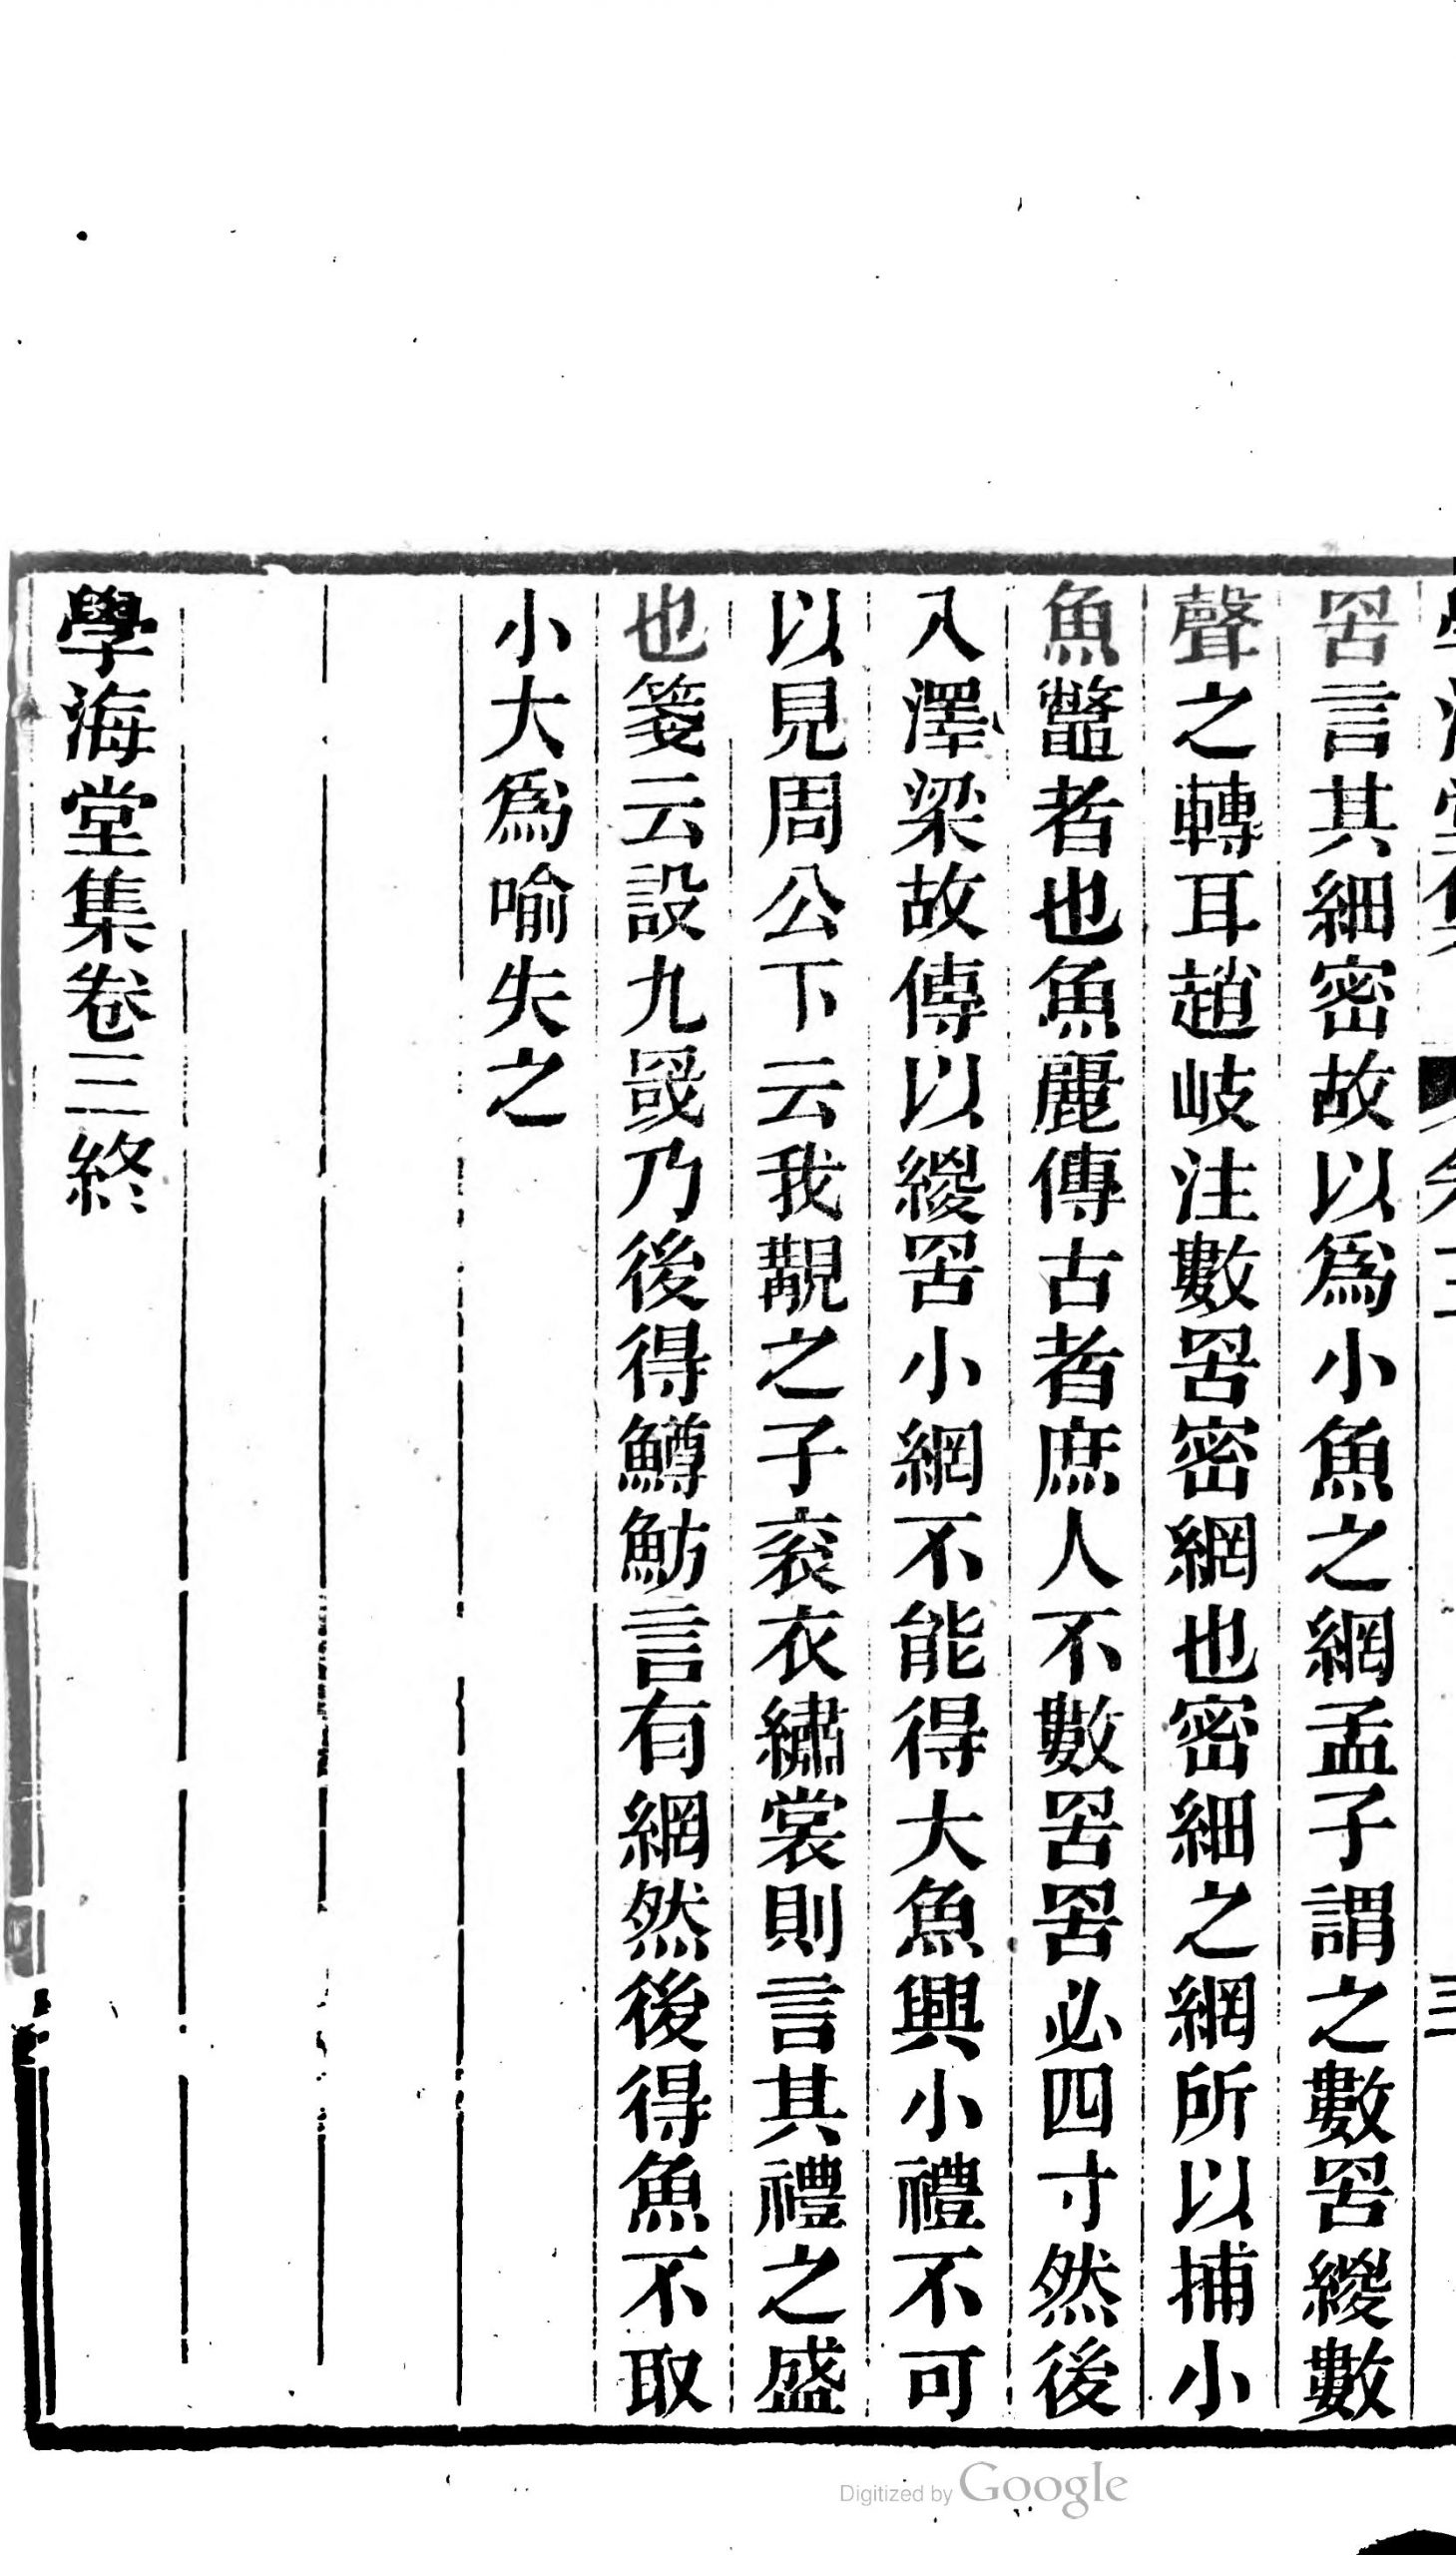 罟言其細密故以爲小魚之網孟子謂之數罟緵數
聲之轉耳趙岐注數罟密網也密細之網所以捕小
魚鼈者也魚麗傳古者庶人不數罟罟必四寸然後
入澤梁故傳以緵罟小網不能得大魚興小禮不可
以見周公下云我觀之子衮衣繡裳則言其禮之盛
也箋云設九罭乃後得鱒魴言有網然後得魚不取
小大爲喻失之
學海堂集卷三終
Digitized by Google